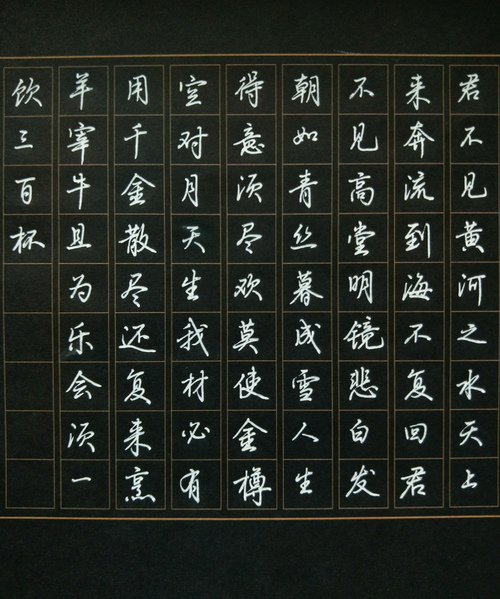 君不见黄河之水天上
来奔流到海不复回君
不见高堂明镜悲白发
朝如青丝暮成雪人生
得意须尽欢莫使金樽
空对月天生我材必有
用千金散尽还复来烹
羊宰牛且为乐会须一
饮三百杯